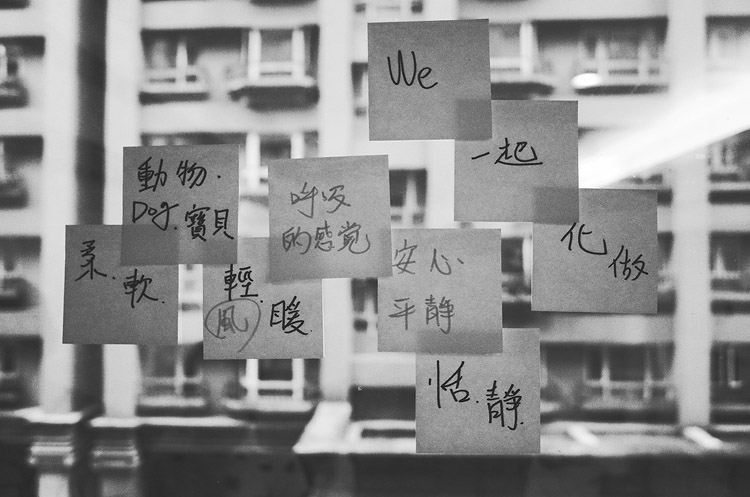 We
一起
化
做
動物.
Dog.寶貝
呼吸
的感覚
柔.軟.
輕.
風 暖.
安心
平静
恬.静.